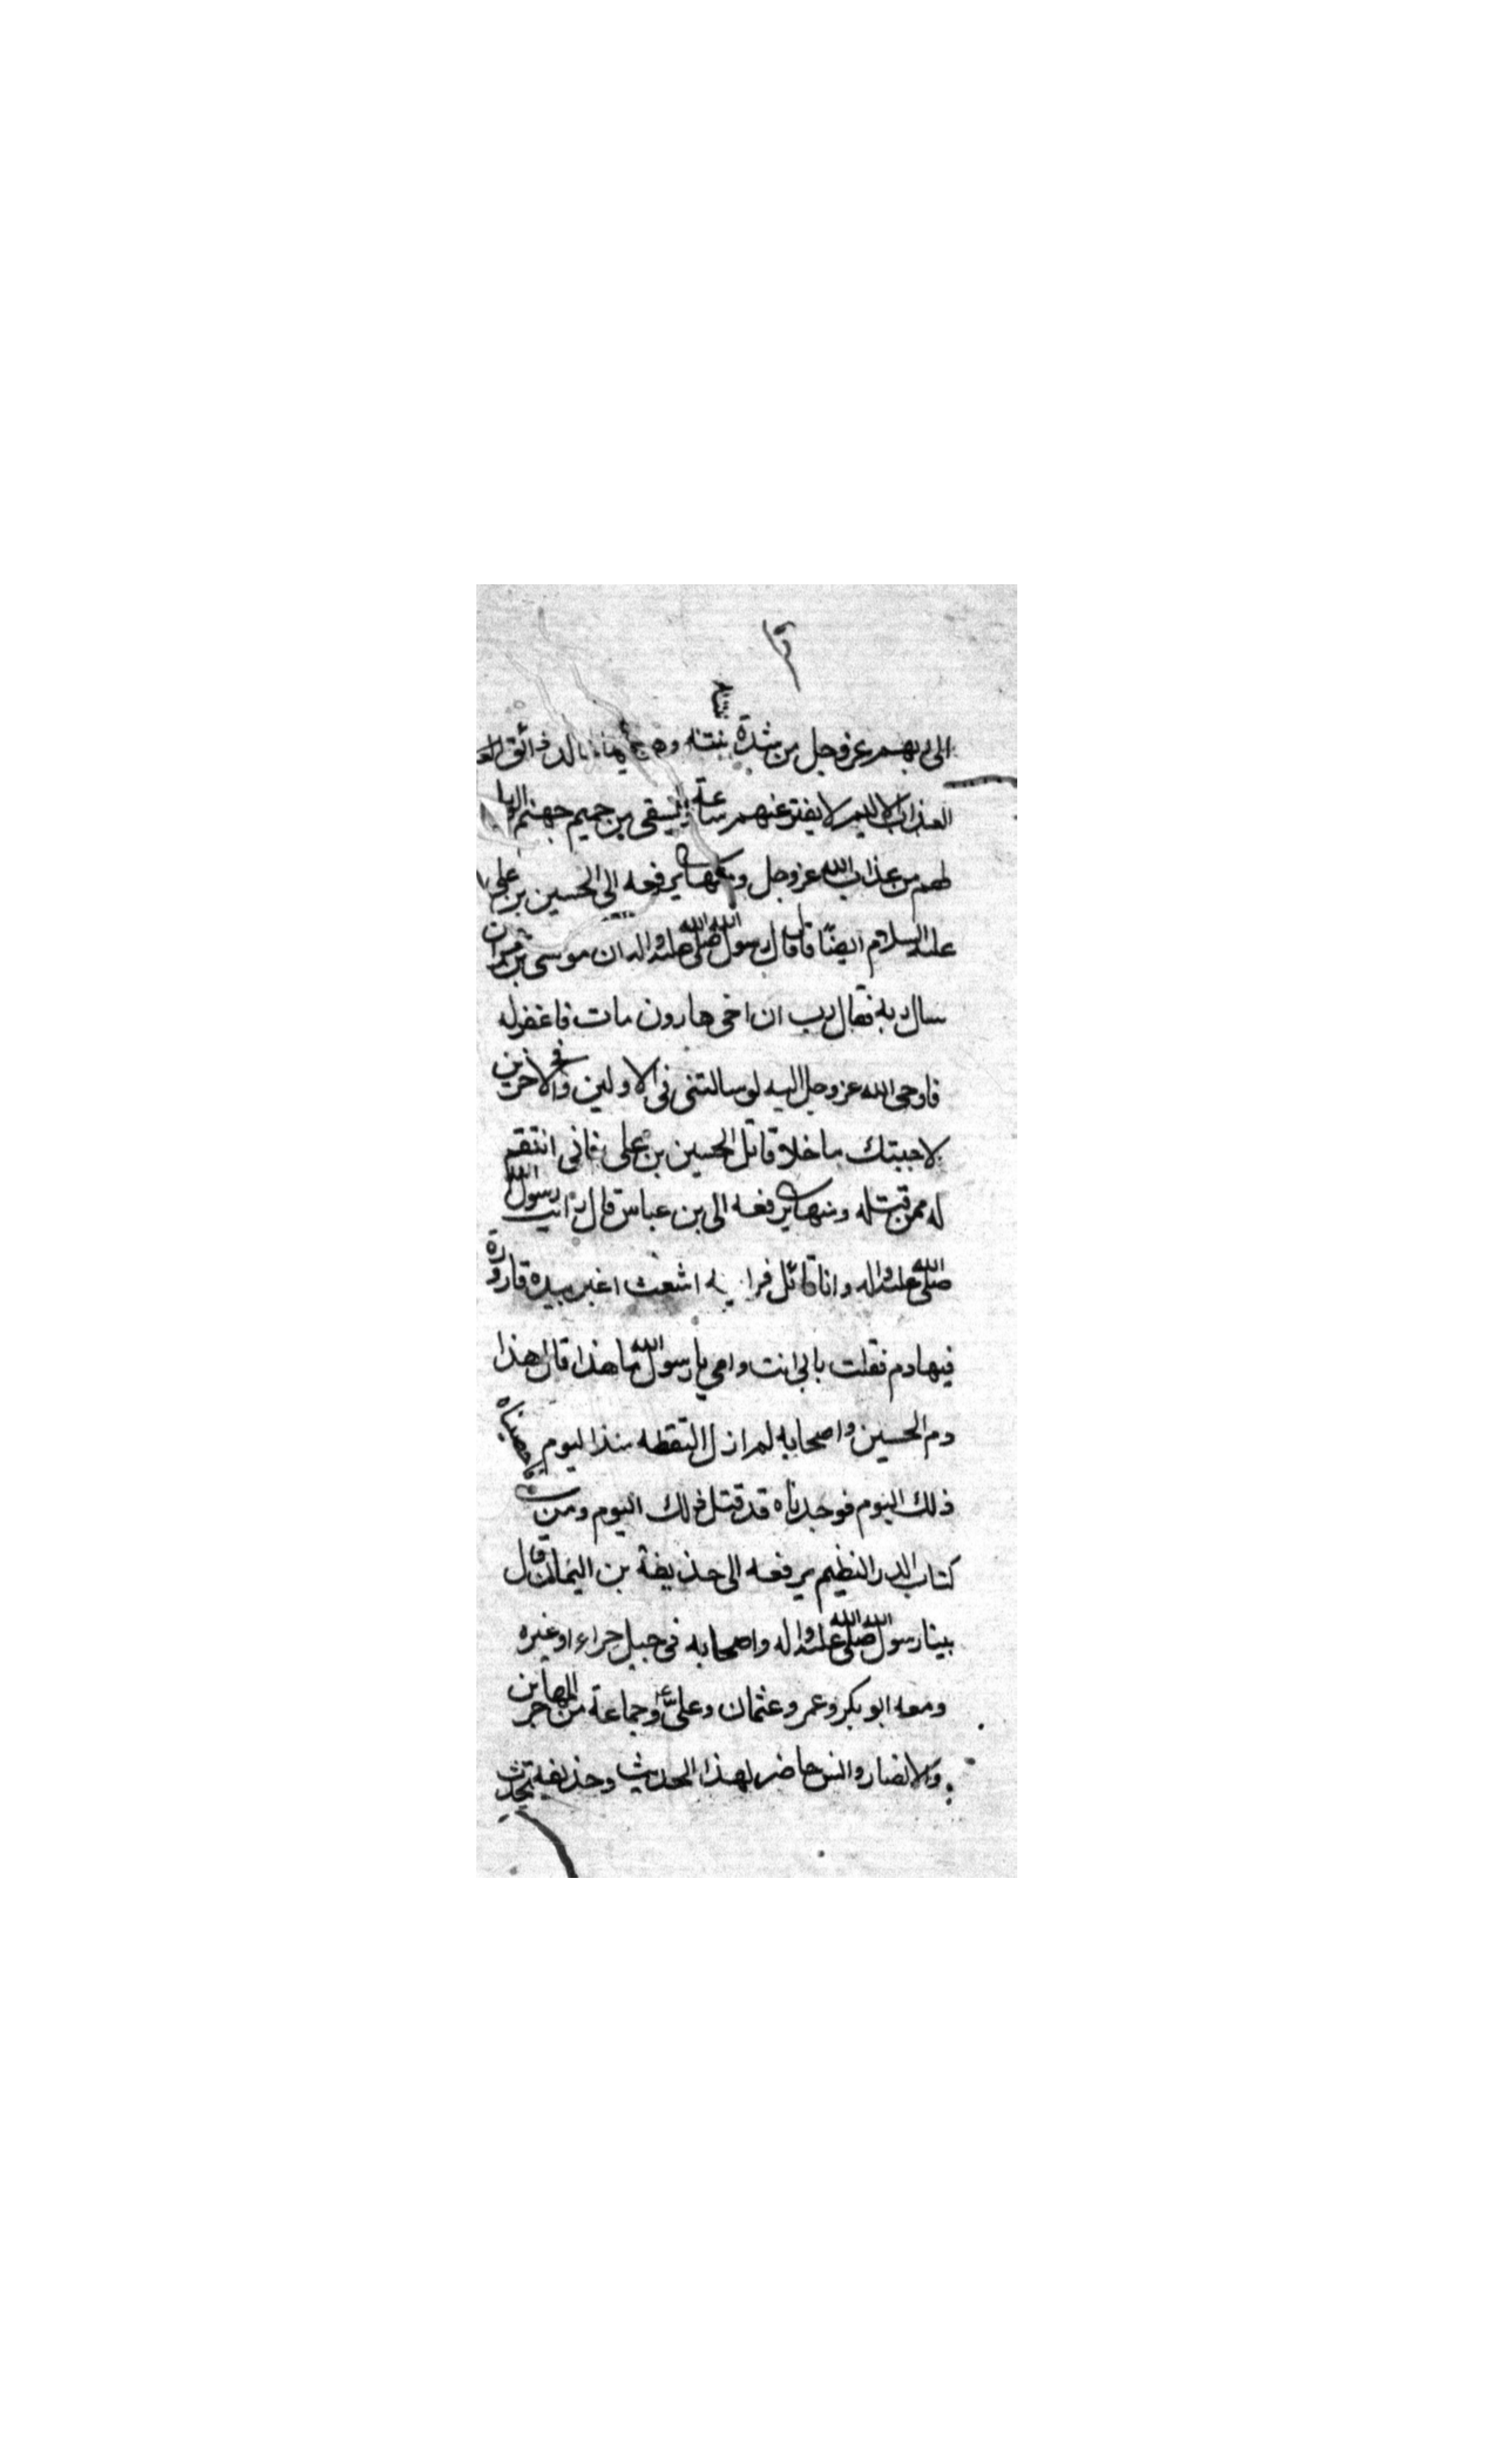 الى ربهم عزوجل من شدة نتنه وهو فيها خالد ذائق العذ
العذاب الاليم لا يفتر عنهم ساعة ويسقى من حميم جهنم الويل
لهم من عذاب الله عزوجل ومنها يرفعه الى الحسين بن على
عليه السلام ايضا قال قال رسول الله صلى الله عليه واله ان موسى بن عمران
سال ربه فقال رب ان اخى هارون مات فاغفر له
فاوحى الله عزوجل اليه لو سالتنى فى الاولين والاخرين
لاجبتك ما خلا قاتل الحسين بن على فانى انتقم
له ممن قتله ومنها يرفعه الى بن عباس قال رايت رسول الله
صلى الله عليه واله وانا قائل اشعث اغبر بيده قارورة
فيها دم فقلت بابى انت وامي يا رسول الله ما هذا قال هذا
دم الحسين واصحابه لم ازل التقطه منذ اليوم
ذلك اليوم فوجدناه قد قتل ذلك اليوم ومن
كتاب الدر النظيم يرفعه الى حذيفة بن اليمان قال
بينا رسول الله صلى الله عليه واله واصحابه فى جبل حراء او غيره
ومعه ابو بكر وعمر وعثمان وعلى ع وجماعة من المهاجرين
والانصار وانس حاضر لهذا الحديث وحذيفه يحدث